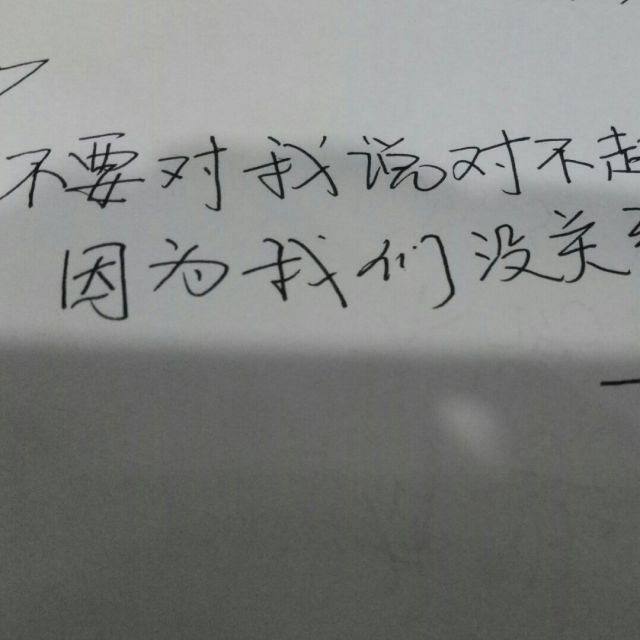 不要对我说对不起
因为我们没关